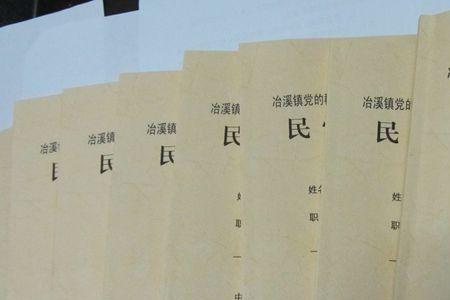 冶溪镇
民
冶溪镇
民
冶溪镇
民
冶溪镇
民
职
一
冶溪镇党的
民
姓名
职
一
冶溪镇党的
民
姓
职
一